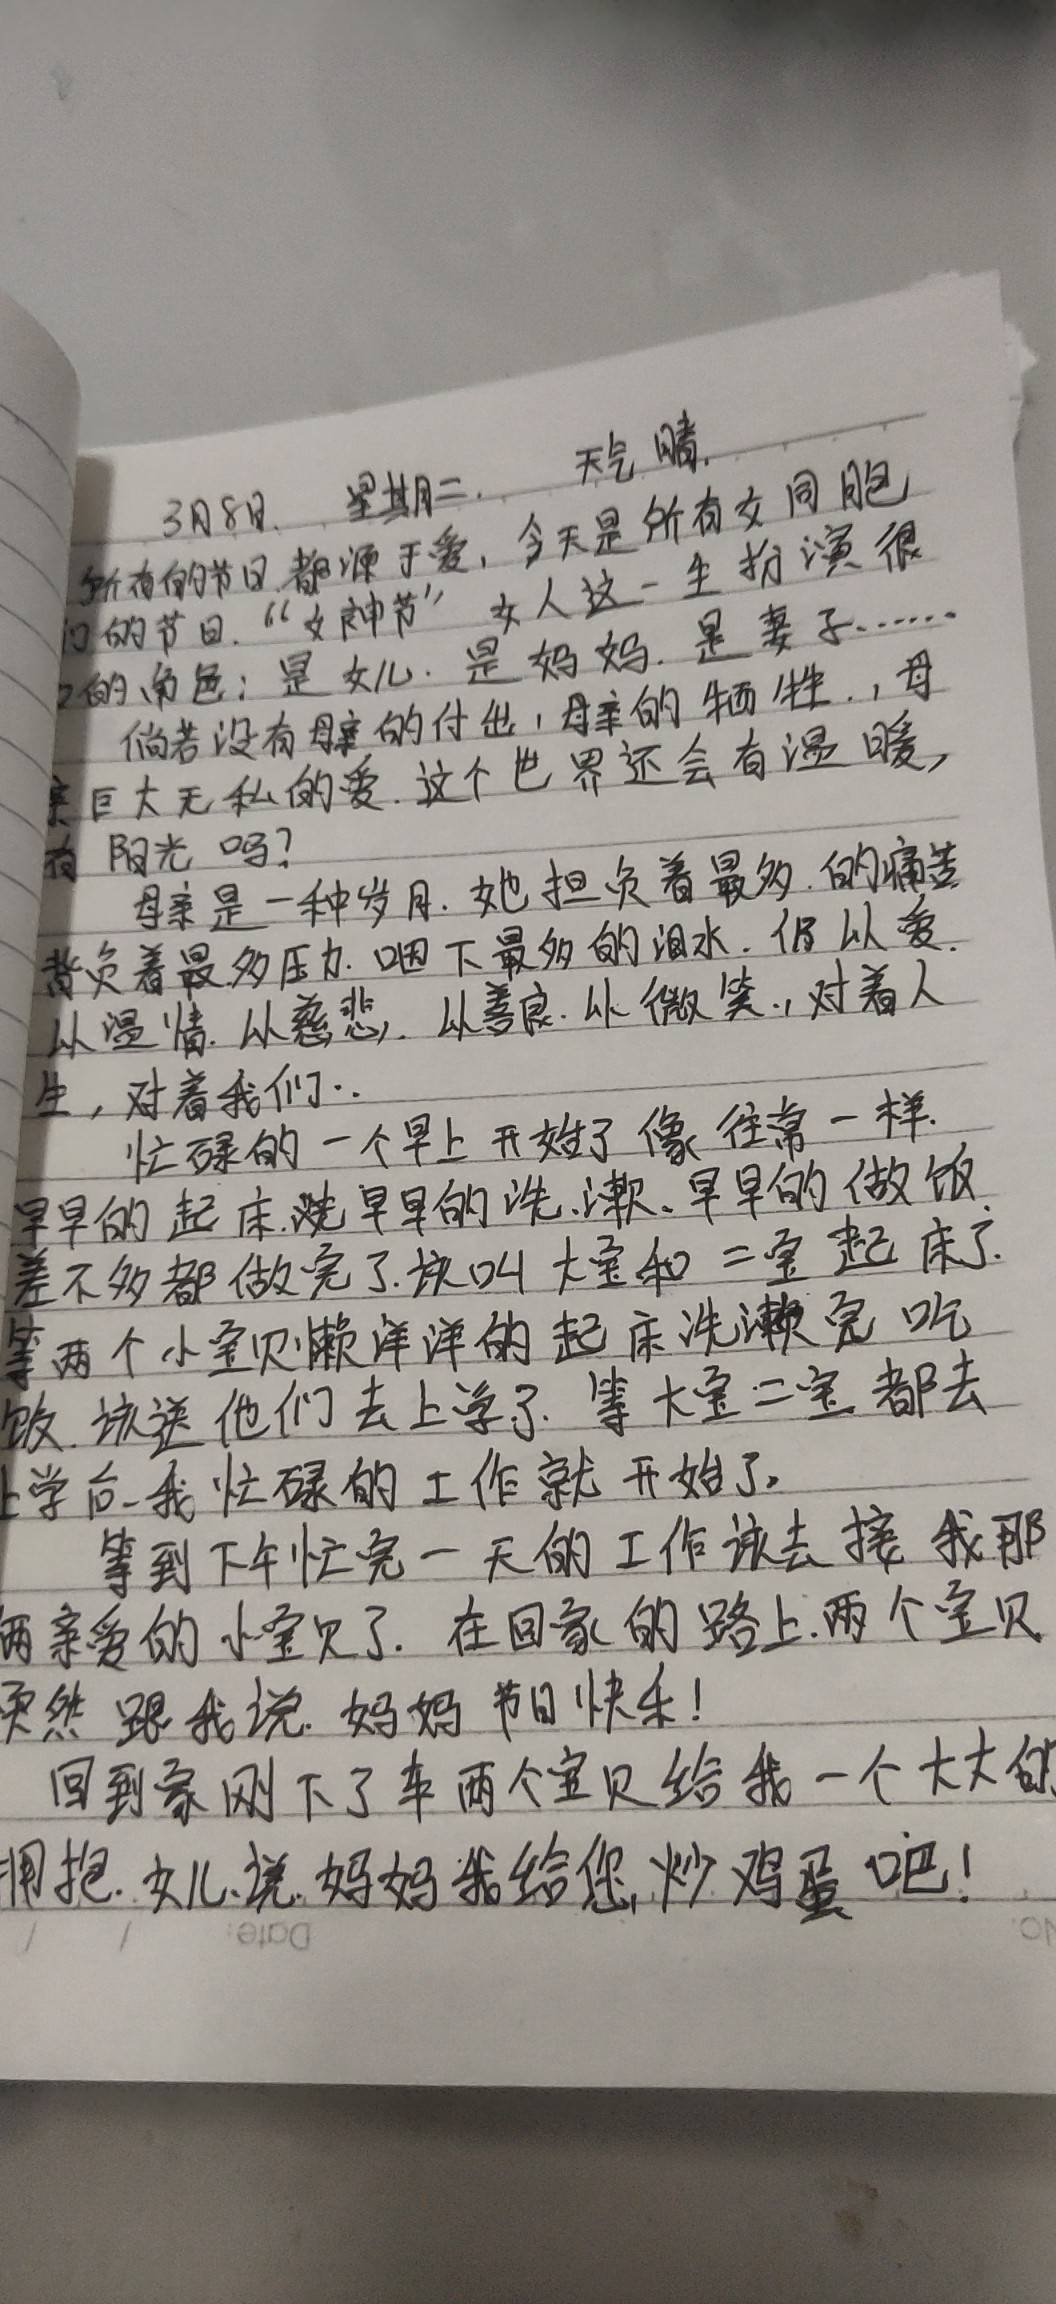 3月8日. 星期二. 天气晴.
所有的节日.都源于爱,今天是所有女同胞
们的节日.“女神节” 女人这一生扮演很
的角色:是女儿.是妈妈.是妻子……
倘若没有母亲的付出,母亲的牺牲.,母
亲巨大无私的爱.这个世界还会有温暖,
有阳光吗?
母亲是一种岁月.她担负着最多.的痛苦
背负着最多压力.咽下最多的泪水.仍以爱.
以温情.以慈悲,.以善良.以微笑.,对着人
生,对着我们..
忙碌的一个早上开始了像往常一样.
早早的起床.洗早早的洗.漱、早早的做饭.
差不多都做完了.该叫大宝和二宝起床了.
等两个小宝贝懒洋洋的起床洗漱完吃
饭.该送他们去上学了.等大宝二宝都去
上学后-我忙碌的工作就开始了。
等到下午忙完一天的工作该去接我那
俩亲爱的小宝贝了.在回家的路上.两个宝贝
突然跟我说.妈妈节日快乐!
回到家刚下了车两个宝贝给我一个大大的
拥抱.女儿.说.妈妈我给您炒鸡蛋吧!
Date: